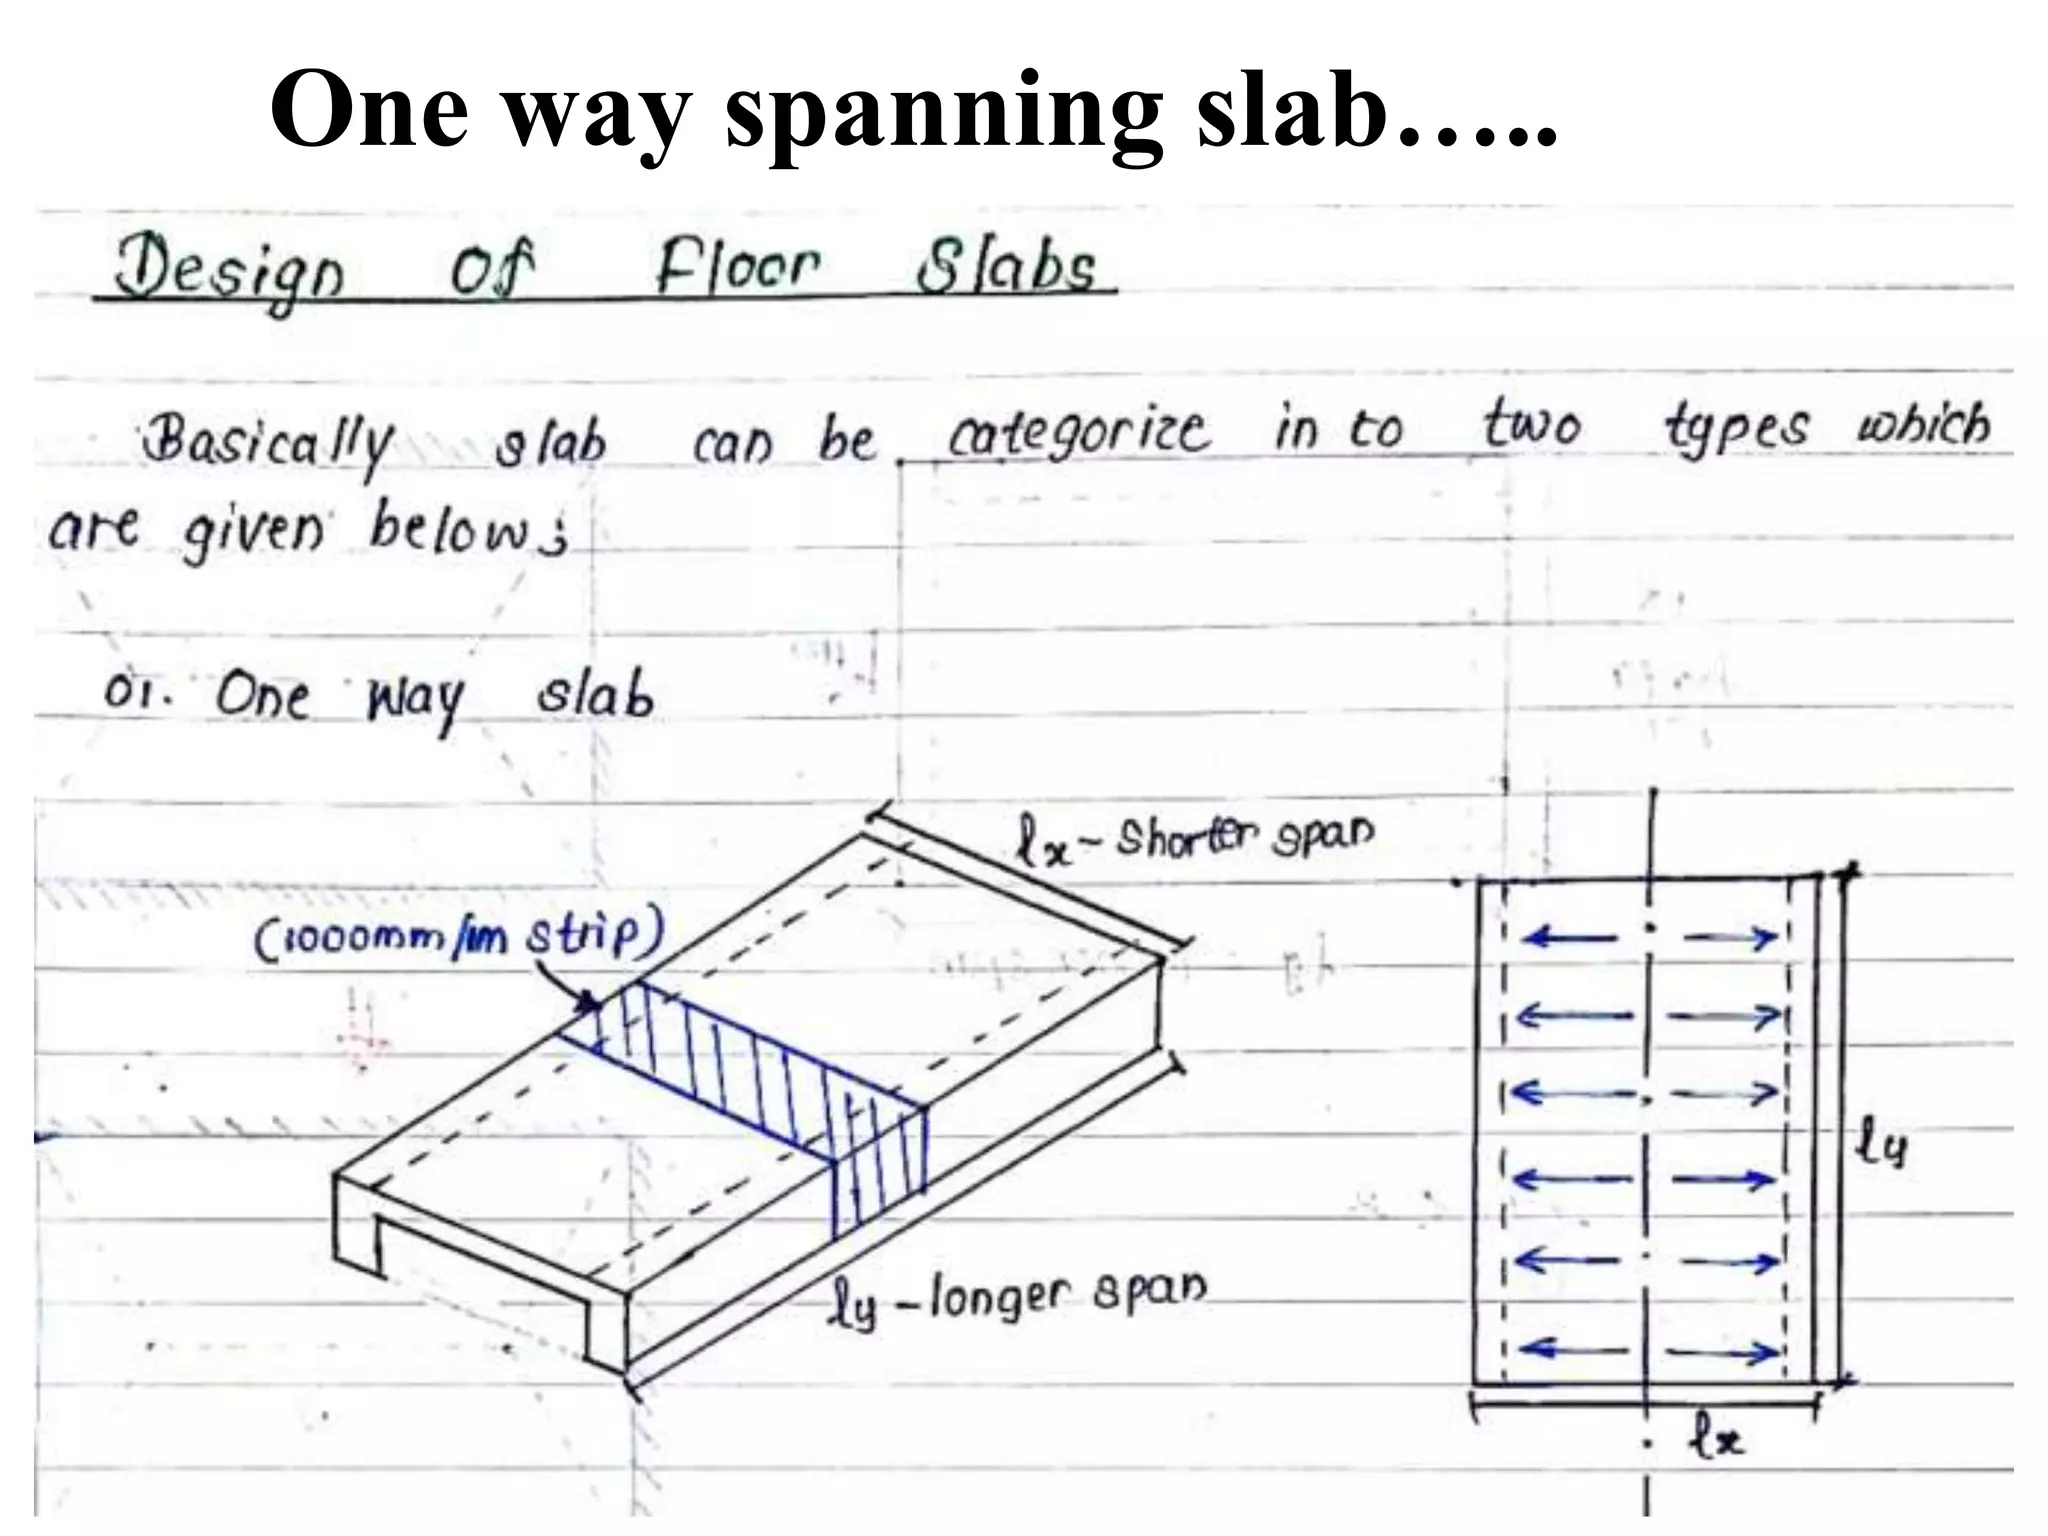 One way spanning slab…..
Design Of Floor Slabs
Basically slab can be categorize in to two types which
are given below;
01. One way slab
lx - Shorter span
(1000mm/1m strip)
ly
ly - longer span
lx